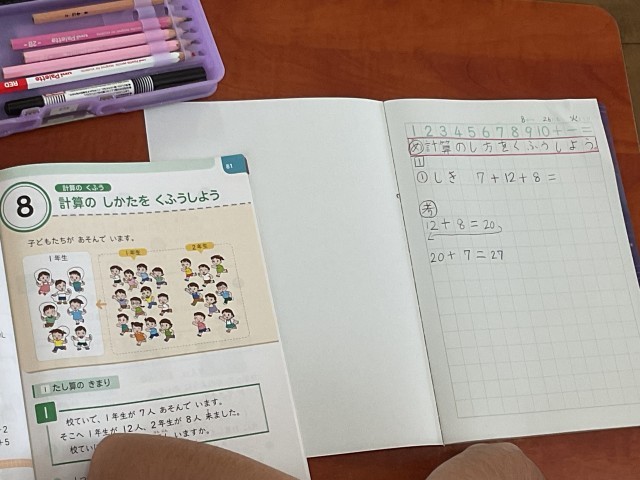 uni Palette
RED uni Palette
B1
8
計算の くふう
計算の しかたを くふうしよう
子どもたちが あそんで います。
1年生
1年生
2年生
1 たし算の きまり
1
校ていで、1年生が 7人 あそんで います。
そこへ 1年生が 12人、2年生が 8人 来ました。
いますか。
1 2 3 4 5 6 7 8 9 10 + - =
め 計算のし方をくふうしよう
1
① しき 7+12+8=
考
12+8=20
20+7=27